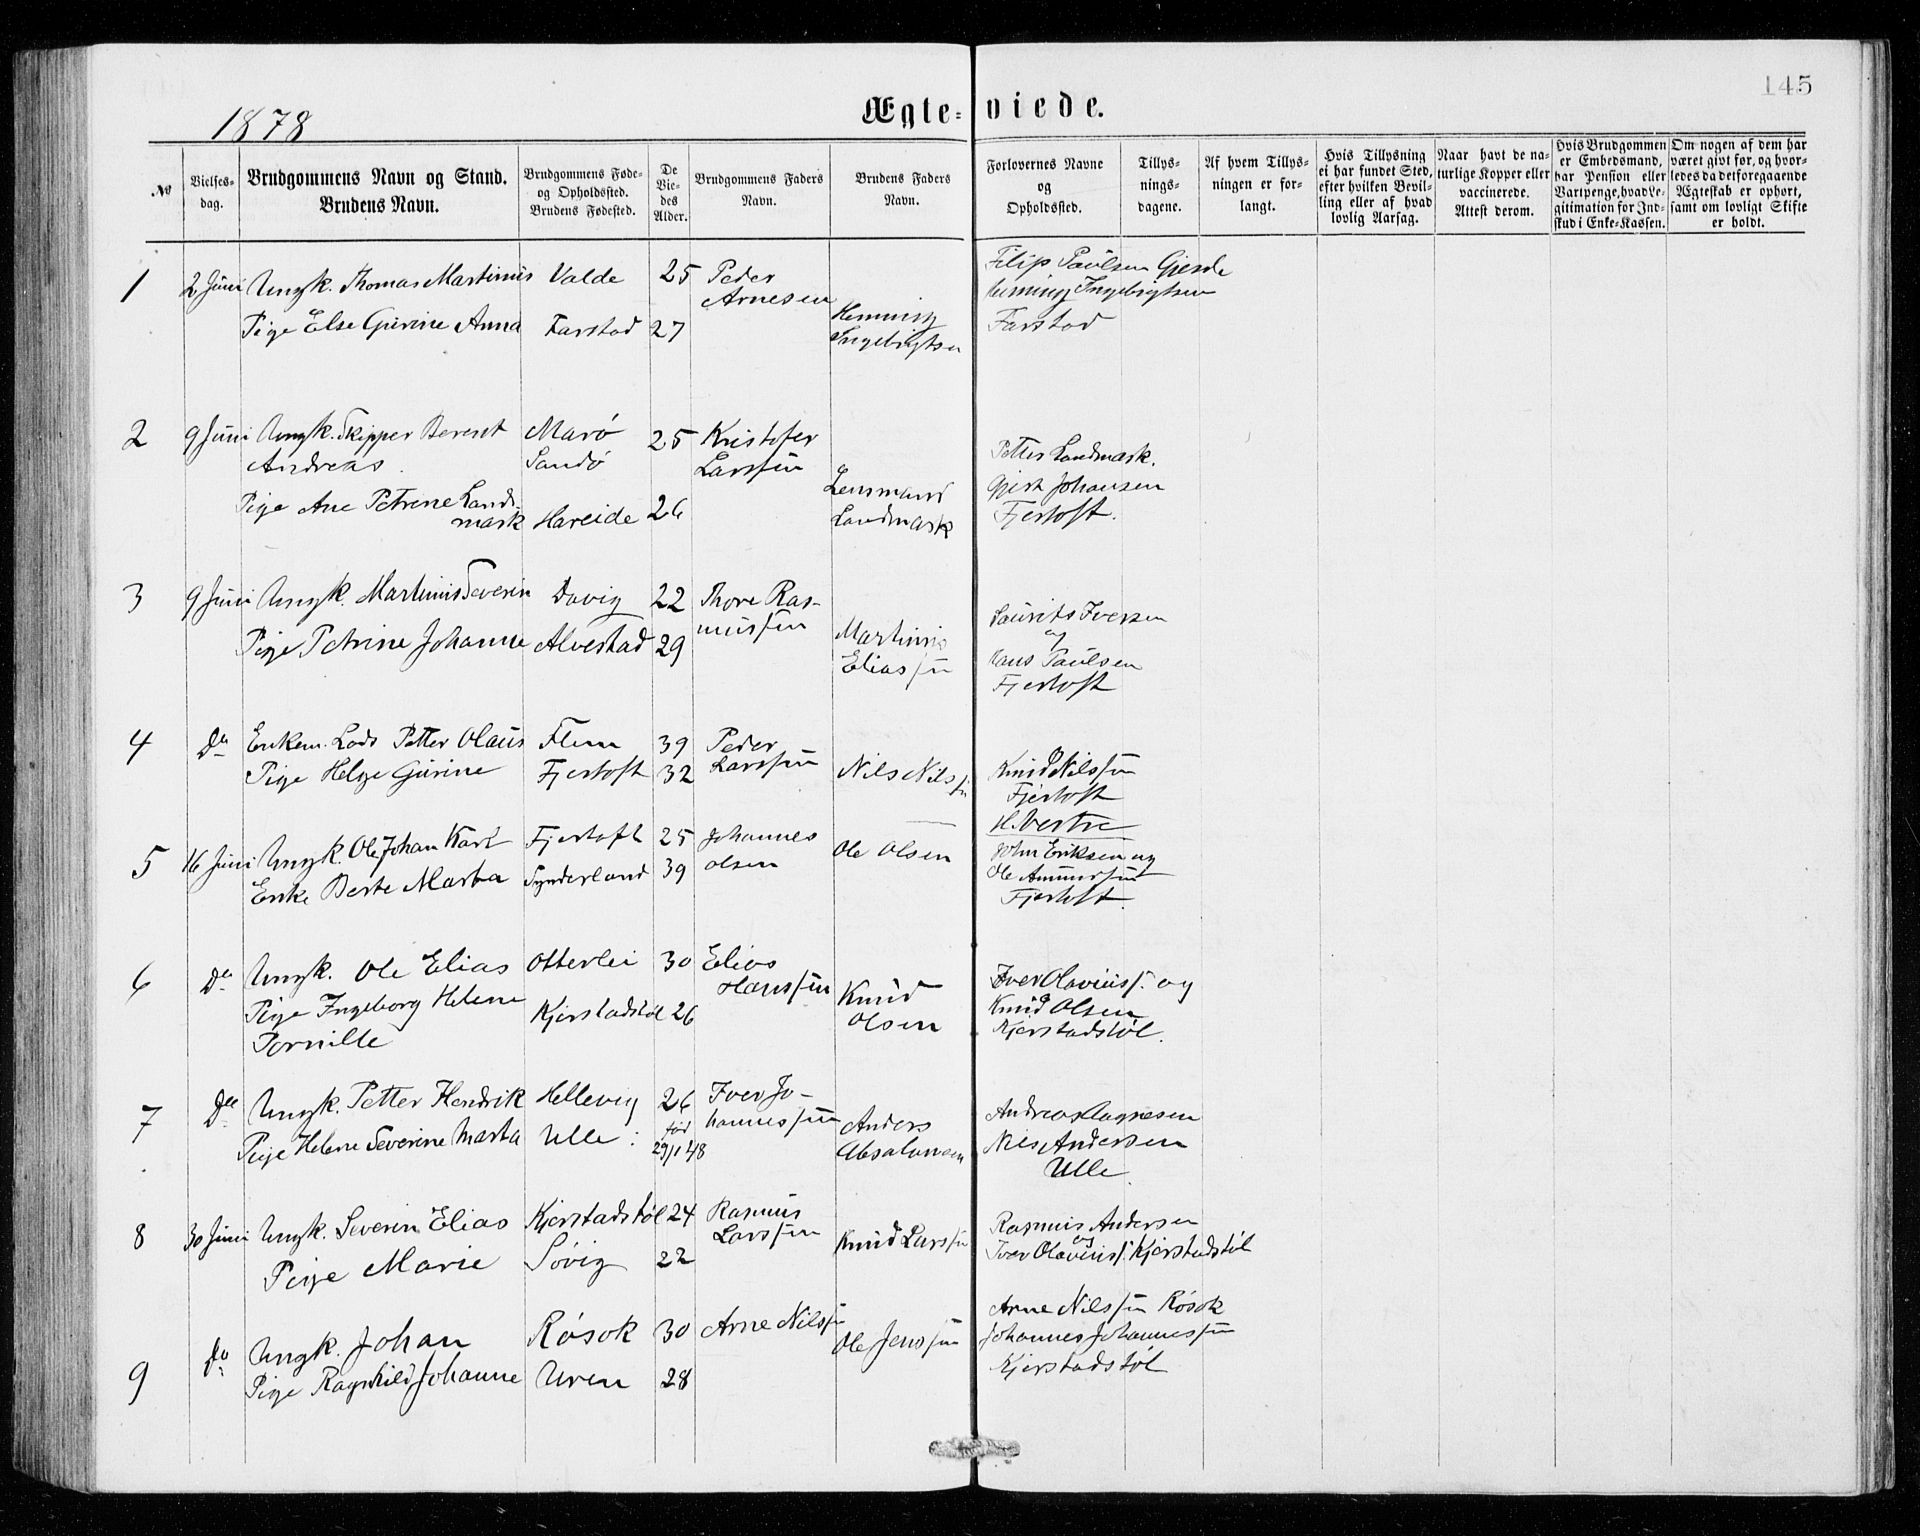 145
1878
Ægte-viede.
No
Vielses-
dag.
Brudgommens Navn og Stand.
Brudens Navn.
Brudgommens Føde-
og Opholdssted.
Brudens Fødested.
De
Vie-
des
Alder.
Brudgommens Faders
Navn.
Brudens Faders
Navn.
Forlovernes Navne
og
Opholdssted.
Tillys-
nings-
dagene.
Af hvem Tillys-
ningen er for-
langt.
Hvis Tillysning
ei har fundet Sted,
efter hvilken Bevil-
ling eller af hvad
lovlig Aarsag.
Naar havt de na-
turlige Kopper eller
vaccinerede.
Attest derom.
Hvis Brudgommen
er Embedsmand,
har Pension eller
Vartpenge, hvad Le-
gitimation for Ind-
skud i Enke-Kassen.
Om nogen af dem har
været givt før, og hvor-
ledes da det foregaaende
Ægteskab er ophørt,
samt om lovligt Skifte
er holdt.
1 2 Juni Ungk. Thomas Martinus Valde 25 Peder
Arnesen
Pige Else Gurine Anna Farstad 27 Henning
Ingebrigtsen
Filip Paulsen Gjerde
Henning Ingebrigtsen
Farstad
2 9 Juni Ungk. Skipper Berent Marø 25 Kristofer
Andreas. Sandø Larssen
Pige Ane Petrine Land-
mark Hareide 26 Lensmand
Landmark
Petter Landmark.
Gjert Johansen
Fjertoft.
3 9 Juni Ungk. Martinus Severin Davig 22 Thore Ras-
mussen
Pige Petrine Johanne Alvestad 29 Martinus
Eliassen
Laurits Iversen
og
Hans Paulsen
Fjertoft
4 Do Enkem. Lods Petter Olaus Flem 39 Peder
Larssen
Pige Helge Gurine Fjertoft 32 Nils Nilssen
Knud Nilssen
Fjertoft
H. Vestre
5 16 Juni Ungk. Ole Johan Kart Fjertoft 25 Johannes
Olsen
Enke Berte Marta Synderland 39 Ole Olsen
John Eriksen og
Ole Amundsen
Fjertoft.
6 Do Ungk. Ole Elias Otterlei 30 Elias
Hanssen
Pige Ingeborg Helene Kjerstadstøl 26 Knud
Pernille Olsen
Iver Olavius s. og
Knud Olsen
Kjerstadstøl.
7 Do Ungk. Petter Hendrik Hellevig 26 Iver Jo-
hannessen
Pige Helene Severine Marta Ulle fød
29/1 48
Anders
Absalonsen
Andreas Aagnesen
Nils Andersen
Ulle.
8 30 Juni Ungk. Severin Elias Kjerstadstøl 24 Rasmus
Larssen
Pige Marie Søvig 22 Knud Larssen
Rasmus Andersen
og
Iver Olavius s. Kjerstadstøl
9 Do Ungk. Johan Røsok 30 Arne Nilssen
Pige Ragnhild Johanne Uren 28 Ole Jenssen
Arne Nilssen Røsok
Johannes Johannessen
Kjerstadstøl